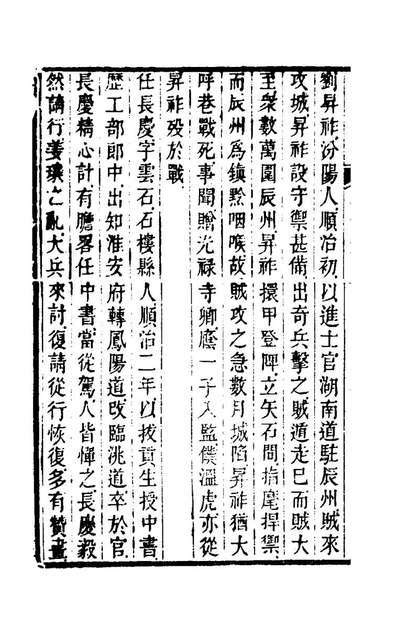 劉昇祚汾陽人順治初以進士官湖南道駐辰州賊來
攻城昇祚設守禦甚備出奇兵擊之賊遁走已而賊大
至衆數萬圍辰州昇祚擐甲登陴立矢石間指麾捍禦
而辰州爲鎮黔咽喉故賊攻之急數月城陷昇祚猶大
呼巷戰死事聞贈光禄寺卿廕一子入監僕溫虎亦從
昇祚殁於戰
任長慶字雲石石樓縣人順治二年以拔貢生授中書
歷工部郎中出知淮安府轉鳳陽道改臨洮道卒於官
長慶精心計有膽畧任中書當從駕人皆憚之長慶毅
然請行姜瓖之亂大兵來討復請從行恢復多有贊畫